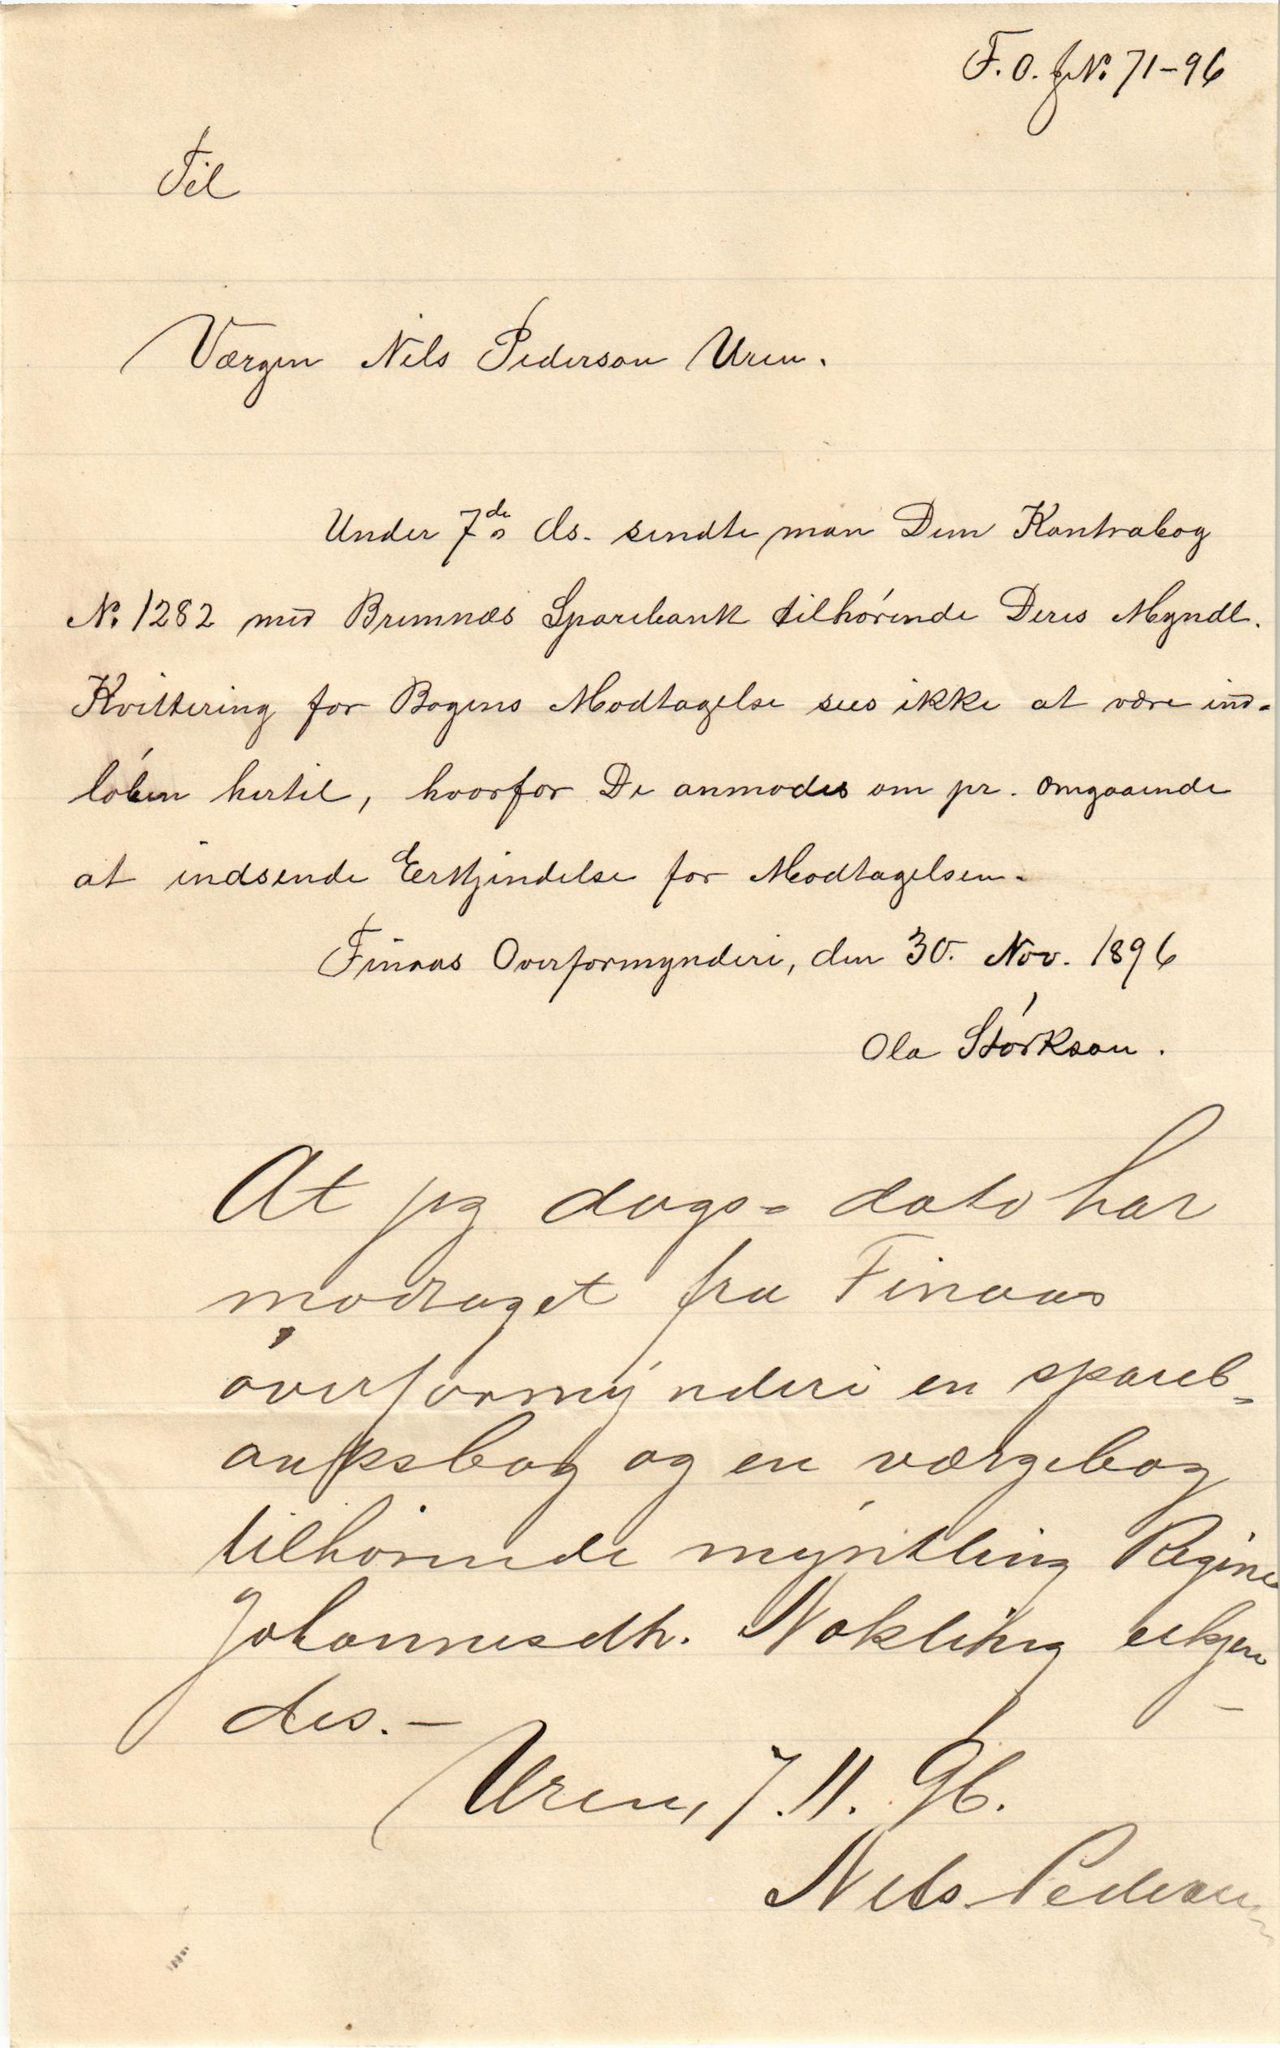 F. O. J No 71-96
Til
Værgen Nils Pederson Uren.
Under 7de ds. sendte man Dem Kontrabog
No 1282 med Bremnæs Sparebank tilhørende Deres Myndl.
Kvittering for Bogens Modtagelse sees ikke at være ind-
løben hertil, hvorfor De anmodes om pr. omgaaende
at indsende Erkjendelse for Modtagelsen.
Finaas Overformynderi, den 30. Nov. 1896
Ola Størkson.
At jeg dags- dato har
modtaget fra Finaas
overformynderi en spareb-
anksbog og en værgebog
tilhørende myntling Regine
Johannesdtr. Nokling erkjen
des.-
Uren, 7.11.96.
Nils Pederson